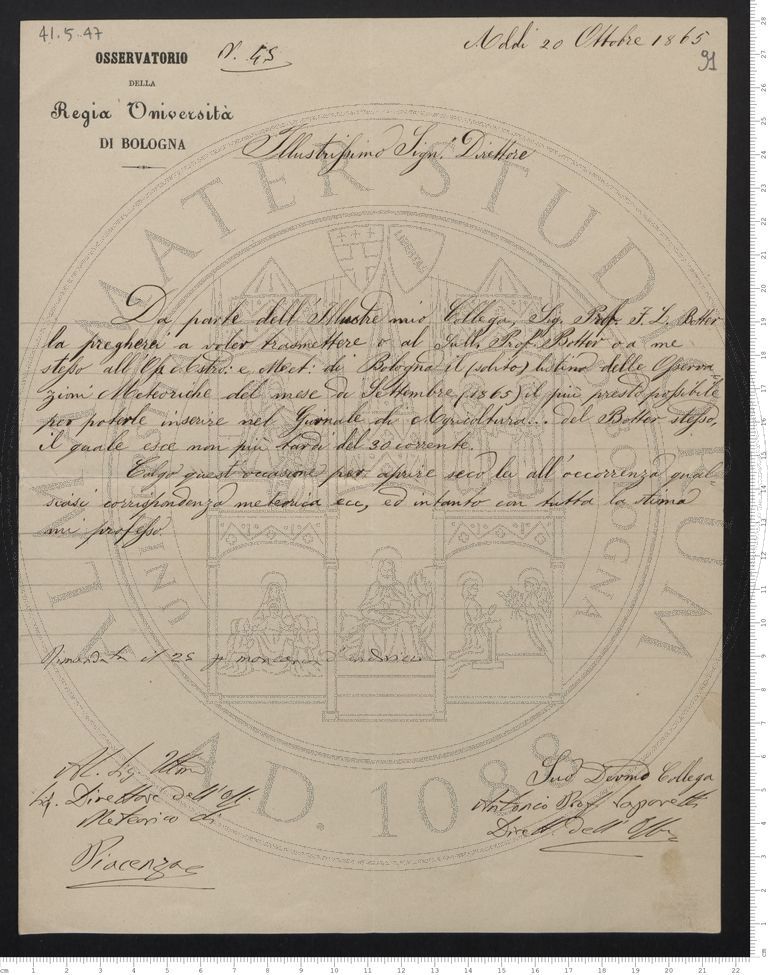 41.5.47
OSSERVATORIO
DELLA
Regia Università
DI BOLOGNA
N. 45
Addi 20 Ottobre 1865
91
Illustrissimo Sign. Direttore
Da parte dell'Illustre mio Collega Sig. Prof. F. L. Botter
la pregherei a voler trasmettere o al Prof. Botter o a me
stesso all'Op. Astro: e Met: di Bologna il (solito) listino delle Osserva=
zioni Meteoriche del mese di Settembre (1865) il più presto possibile
per poterle inserire nel Giornale di Agricoltura... del Botter stesso,
il quale esce non più tardi del 30 corrente.
Colgo quest'occasione per aprire seco lei all'occorrenza qual=
siasi corrispondenza meteorica ecc, ed intanto con tutta la stima
mi professo.
Rimandata il 25 p mancanza d'indirizzo
Al. Sig.
Direttore dell'Oss.
Meteorico di
Piacenza
Suo Devmo Collega
Antonio Prof. Saporetti
Dirett. dell'Oss
ALMA MATER STUDIORUM
A.D. 1088
LIBERTAS